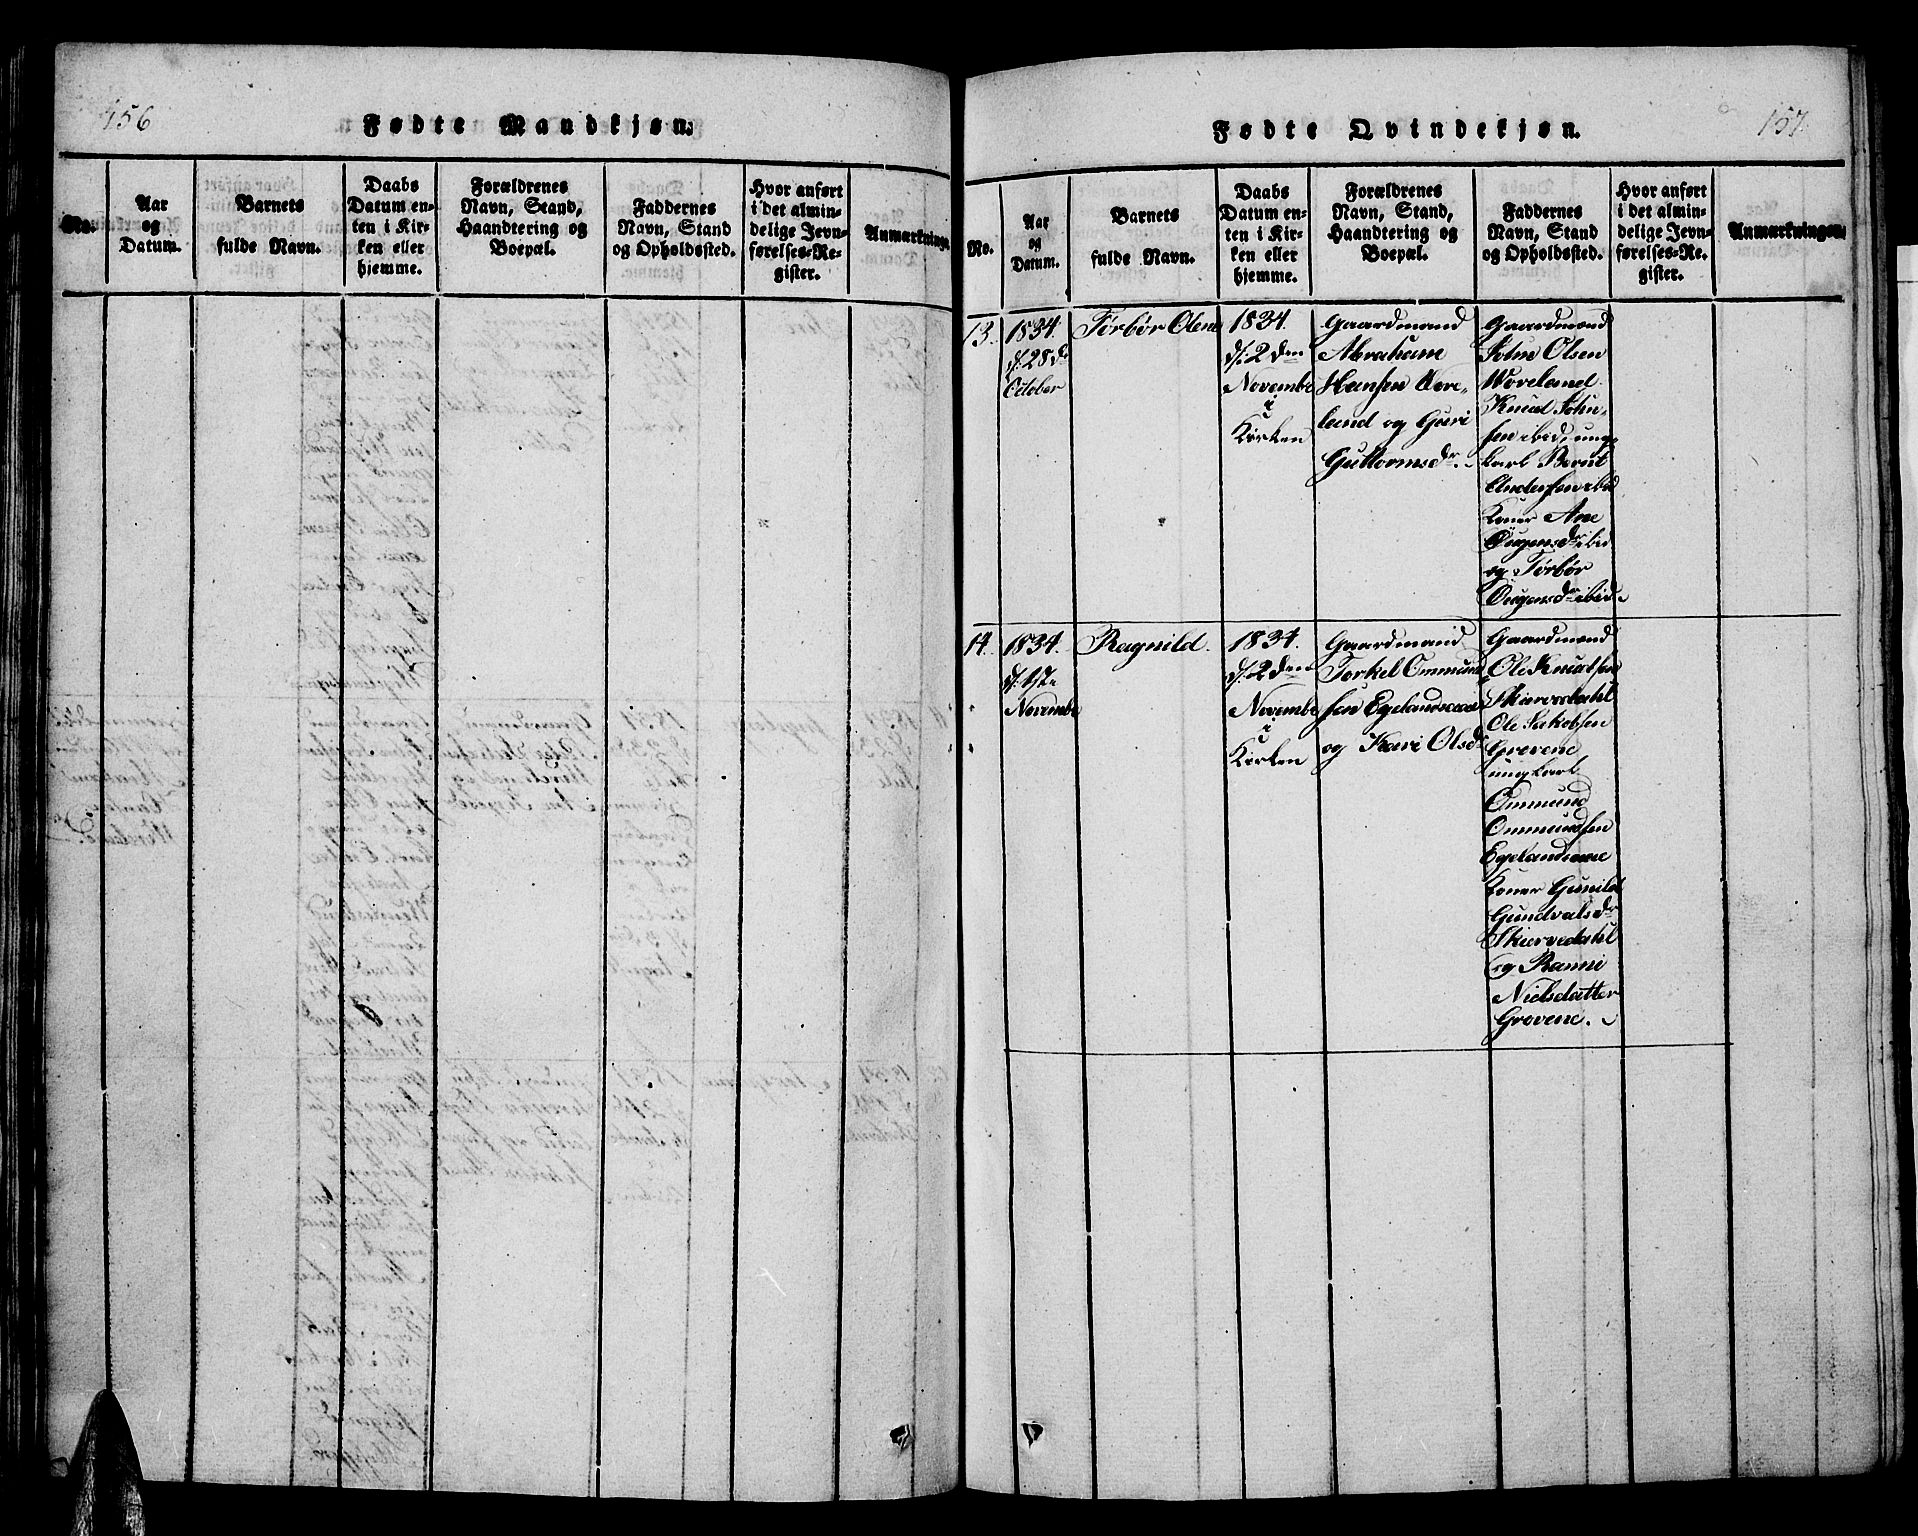 156
Fødte Mandkjøn.
No.
Aar
og
Datum.
Barnets
fulde Navn.
Daabs
Datum en-
ten i Kir-
ken eller
hjemme.
Forældrenes
Navn, Stand,
Haandtering og
Boepæl.
Faddernes
Navn, Stand
og Opholdssted.
Hvor anført
i det almin-
delige Jevn-
førelses-Re-
gister.
Anmærkninger.
157.
Fødte Qvindekjøn.
No.
Aar
og
Datum.
Barnets
fulde Navn.
Daabs
Datum en-
ten i Kir-
ken eller
hjemme.
Forældrenes
Navn, Stand,
Haandtering og
Boepæl.
Faddernes
Navn, Stand
og Opholdssted.
Hvor anført
i det almin-
delige Jevn-
førelses-Re-
gister.
Anmærkninger.
13.
1834.
d: 28de
October
Tørbør Olene
1834.
d: 2den
Novembr
i
Kirken
Gaardmand
Abraham
Hansen Vore-
land og Guri
Guttormsdr.
Gaardmand
John Olsen
Woreland.
Knud John-
sen ibid, ung-
karl Bernt
Andersen ibid
koner Ane
Ougensdr ibid
og Tørbør
Ougensdr ibid.
14.
1834.
d: 1ste
Novembr
Ragnild.
1834.
d: 2den
Novembr
i
Kirken
Gaardmand
Torkel Ommund
sen Egelandsaae
og Kari Olsdr
Gaardmand
Ole Knudsen
Skiervedahl
Ole Jakobsen
Grovene
ungkarl
Ommund
Ommundsen
Egelandsaae
koner Gunild
Gundvalsdr
Skiervedahl
og Ranni
Nielsdatter
Grovene.